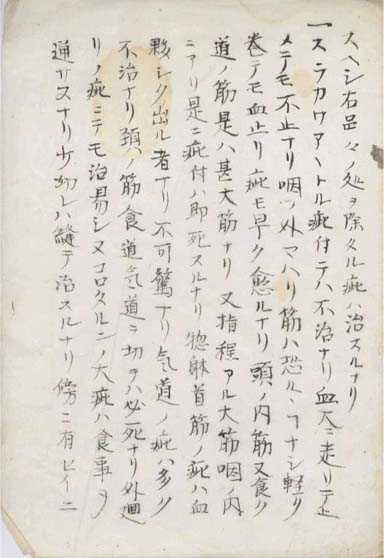 スヘシ右品々ノ処ヲ除クル疵ハ治スルナリ
一スラカワアヽトル疵付テハ不治ナリ血大ニ走リテ止
メニテモ不止ナリ咽ツ外マハリ筋ハ恐ルヽヿナシ軽ク
巻テモ血止リ疵モ早ク愈ルナリ頭ノ内筋又食ク
道ノ筋是ハ甚大筋ナリ又指程アル大筋咽ノ内
ニアリ是ニ疵付ハ即死スルナリ惣躰首筋ノ疵ハ血
夥シク出ル者ナリ不可驚ナリ気道ノ疵ハ多ク
不治ナリ頚ノ筋食道気道ヲ切ラハ必死ナリ外廻
リノ疵ミテモ治易シ又コロクルンノ大疵ハ食事ヲ
通サスナリ少切レハ縫テ治スルナリ傍ニ有ヒイニ